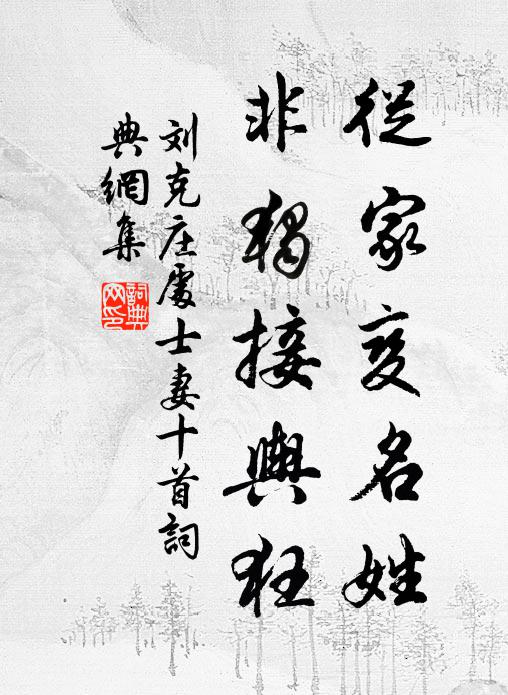 從家变名姓
非獨接輿狂
刘克庄處士妻十首詞
典網集
詞典
网印